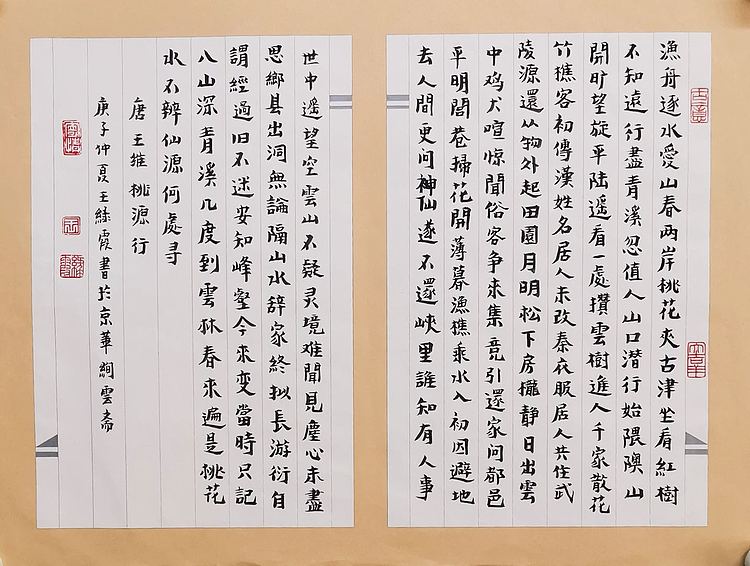 漁舟逐水愛山春两岸桃花夾古津坐看紅樹
不知遠行盡青溪忽值人山口潜行始隈隩山
開旷望旋平陸遥看一處攢雲樹進人千家散花
竹樵客初傳漢姓名居人未改秦衣服居人共住武
陵源還从物外起田園月明松下房櫳静日出雲
中鸡犬喧惊聞俗客争来集竞引還家问都邑
平明閭巷掃花開薄暮漁樵乘水入初因避地
去人間更问神仙遂不還峡里誰知有人事
世中遥望空雲山不疑灵境难聞見塵心未盡
思鄉县出洞無論隔山水辞家終拟長游衍自
謂經過旧不迷安知峰壑今来变當時只記
入山深青溪几度到雲林春来遍是桃花
水不辨仙源何處寻
唐王维桃源行
庚子仲夏王絲霞書於京華絢雲斋